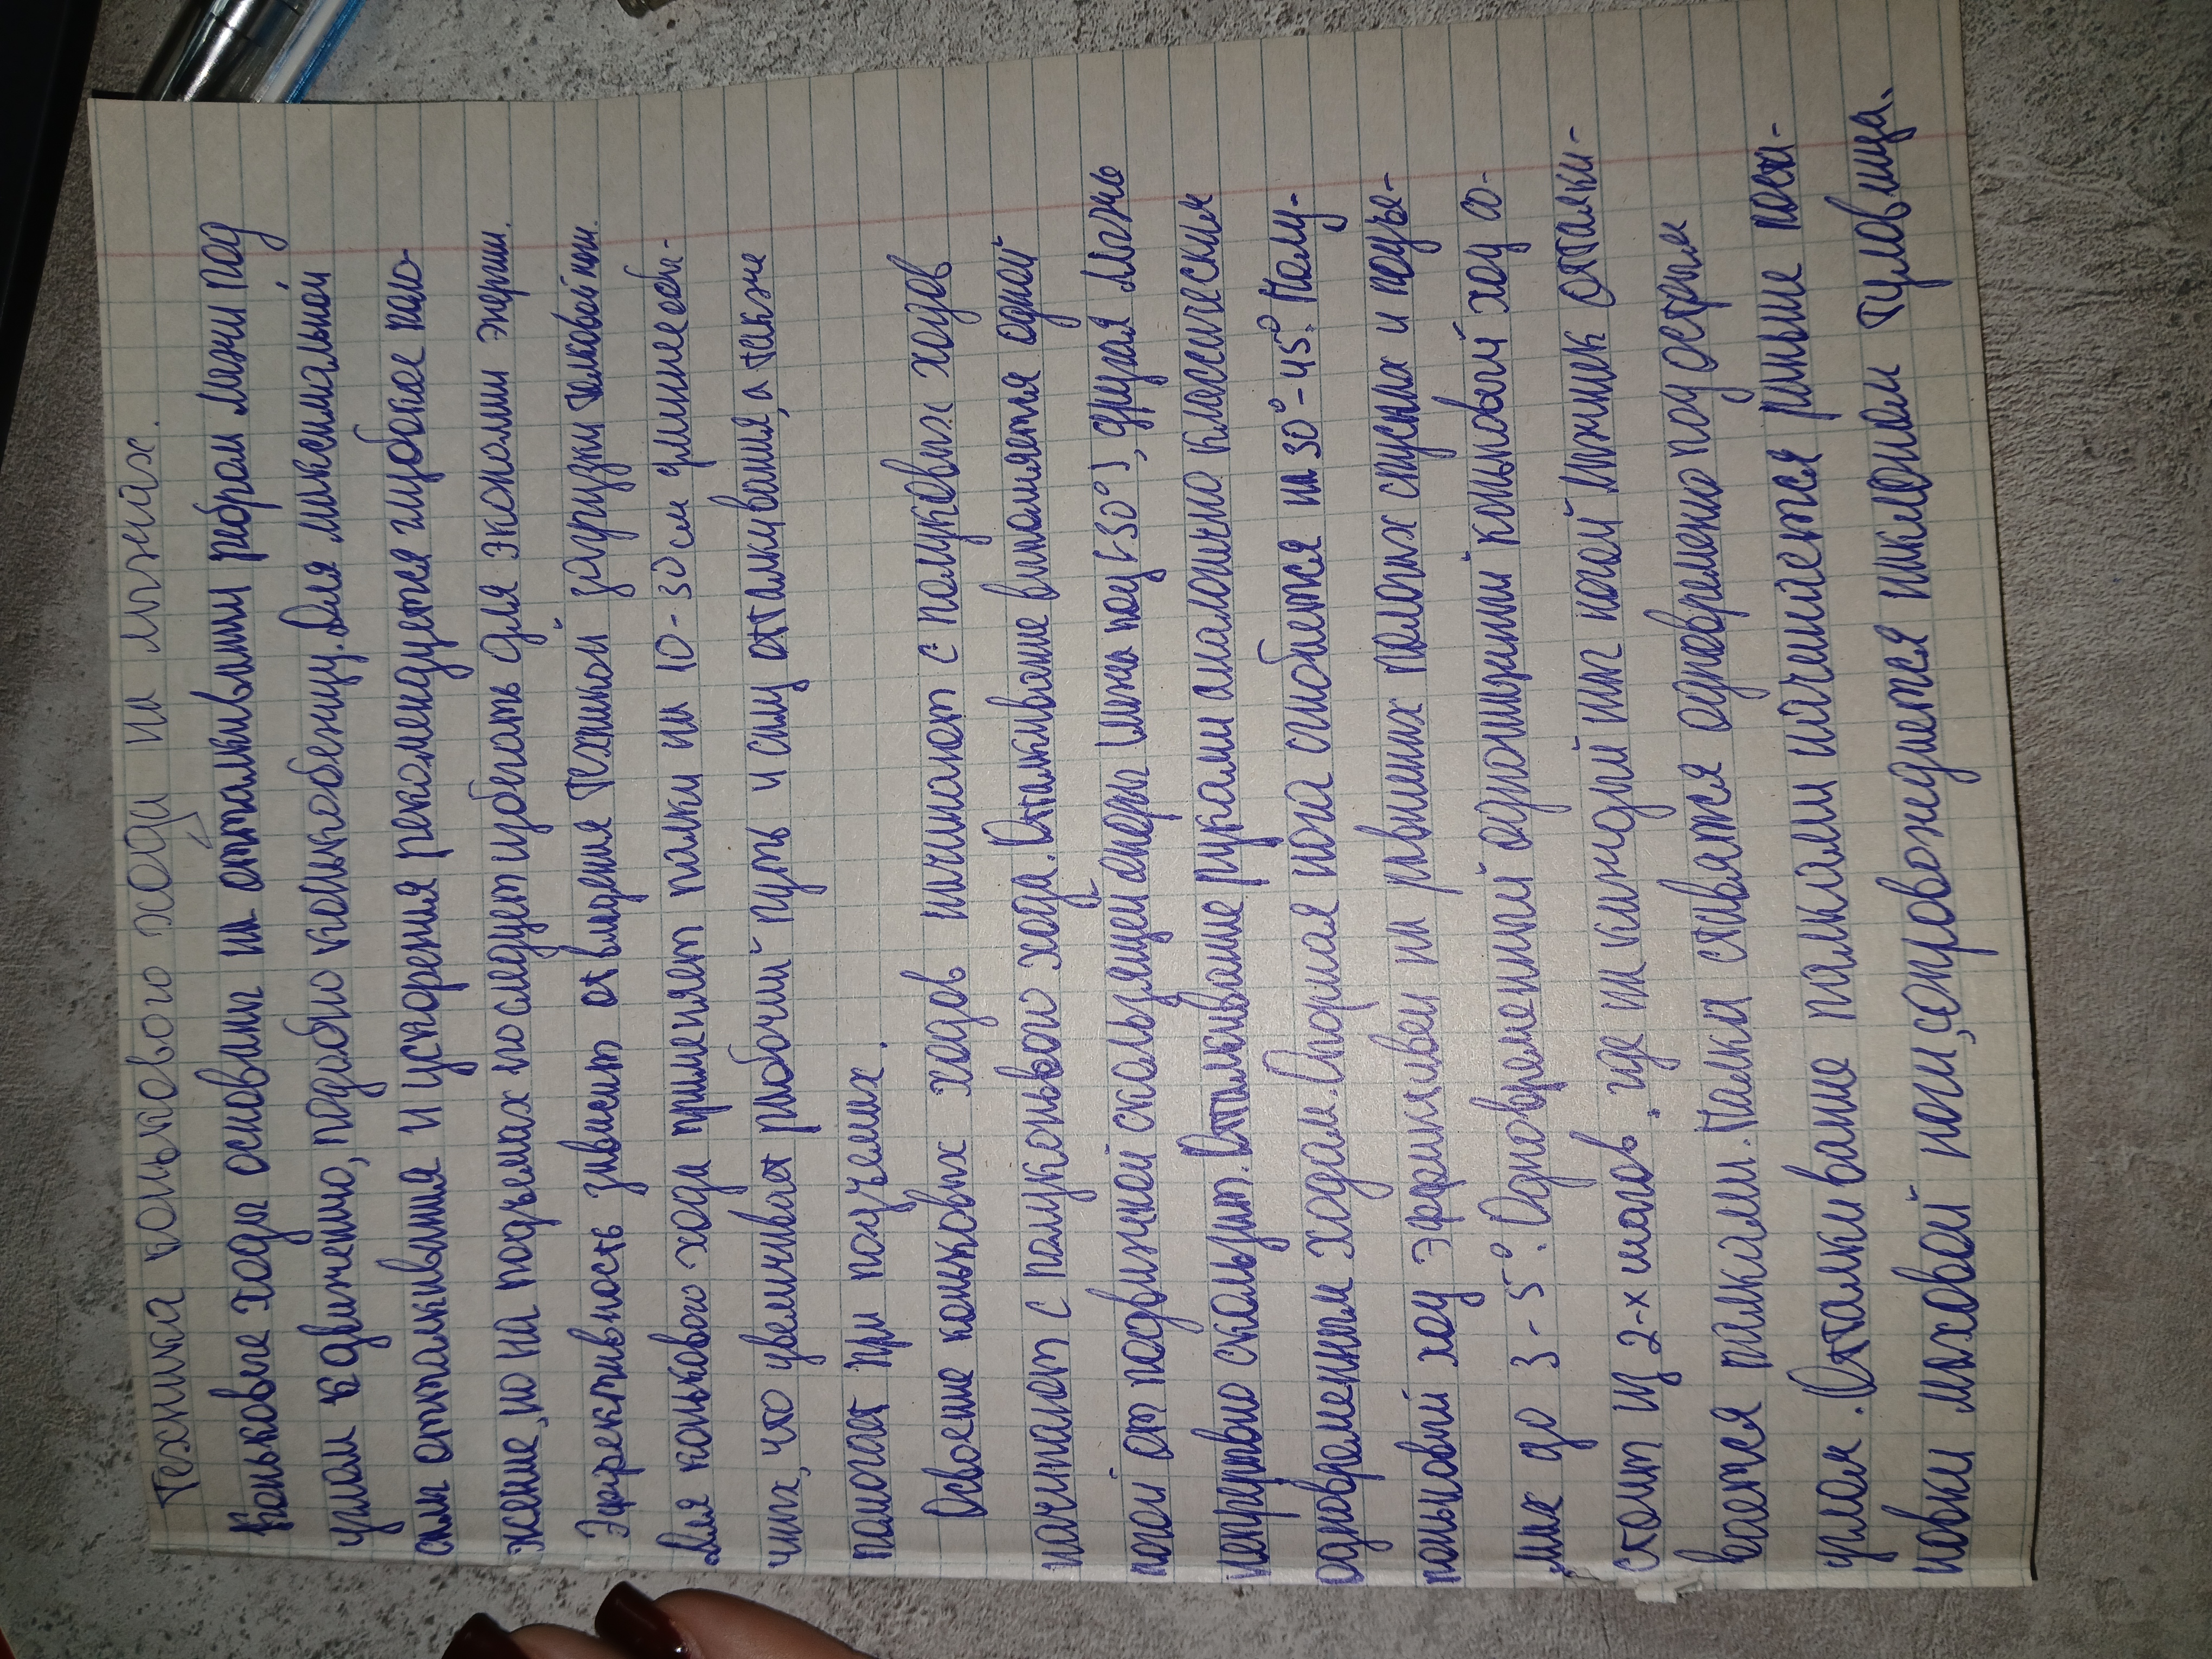 Техника конькового хода на лыжах.
Коньковые ходы основаны на отталкивании ребром лыжи под
углом к движению, подобно конькобежцу. Для максимальной
силы отталкивания и ускорения рекомендуется глубокое поло-
жение, но на подъемах последует избегать для экономии энергии.
Эффективность зависит от владения техникой загрузки толковой ноги.
Для конькового хода применяет палки на 10-30 см длиннее обы-
чных, что увеличивает рабочий путь и силу отталкивания, а также
помогает при подъемах.
Освоение коньковых ходов начинают с полуковых ходов
начинают с полуконьвого хода. Отталкивание выполняется одной
ногой от подвижной скользящей опоры (лыжа под <30°), другая лыжь
непрерывно скользит. Отталкивание руками аналогично классическим
одновременным ходам. Опорная нога сгибается на 30°-45°. Полу-
коньковый ход эффективен на равнинах пологих спусках и подъе-
мах до 3-5°. Одновременный одношажный коньковый ход со-
стоит из 2-х шагов. где на каждый шаг ногой лыжник отталки-
вается палками. Палка ставятся одновремено под острым
углом. Отталкивание палками начинается раньше поста-
новки маховой ноги, сопровождается наклоном туловища.